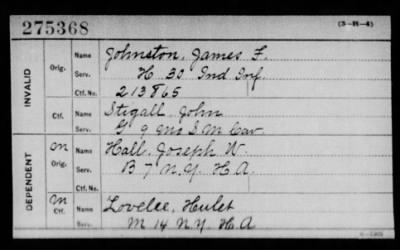 275368
(3-H-4)
INVALID
Orig. Name Johnston, James F.
Serv. H 30 Ind Inf.
Ctf. No. 213865
Ctf. Name Stigall, John
Serv. G 9 Mo S M Cav.
DEPENDENT
m Orig. Name Hall, Joseph W.
Serv. B 7 N.Y. H.A.
Ctf. No.
m Ctf. Name Lovelee, Hulet
Serv. M 14 N.Y. H.A